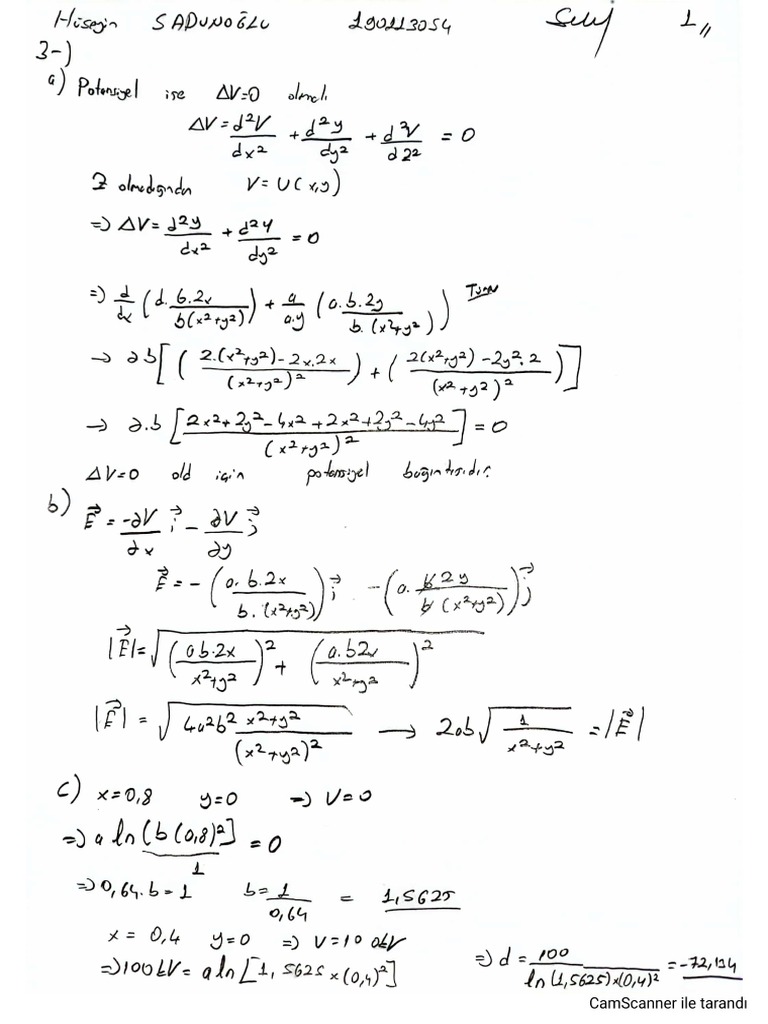 Hüseyin SADUNOĞLU 190113054 1,,
3-)
a) Potansiyel ise ΔV=0 olmalı
ΔV = d²V/dx² + d²y/dy² + d²V/dz² = 0
Z olmadığından V = U(x,y)
=> ΔV = d²y/dx² + d²y/dy² = 0
=> d/dx (d. b.2x / b(x²+y²)) + a/a.y (a.b.2y / b.(x²+y²))
→ ab[(2.(x²+y²) - 2x.2x / (x²+y²)²) + (2(x²+y²) - 2y².2 / (x²+y²)²)]
→ a.b [2x² + 2y² - 4x² + 2x² + 2y² - 4y² / (x²+y²)²] = 0
ΔV=0 old için potansiyel bağıntısıdır.
b) E⃗ = -∂V/∂x i⃗ - ∂V/∂y j⃗
E⃗ = - (a. b.2x / b.(x²+y²)) i⃗ - (a. b 2y / b (x²+y²)) j⃗
|E⃗| = √((ab.2x / x²+y²)² + (a.b2x / x²+y²)²)
|E⃗| = √(4a²b² x²+y² / (x²+y²)²) → 2ab √(1 / x²+y²) = |E⃗|
c) x=0,8 y=0 => V=0
=> a ln[b(0,8)²] = 0
1
=> 0,64.b = 1 b = 1/0,64 = 1,5625
x = 0,4 y=0 => V=100kV
=> 100kV = a ln[1,5625×(0,4)²] => d = 100 / ln(1,5625)×(0,4)² = -72,134
CamScanner ile tarandı